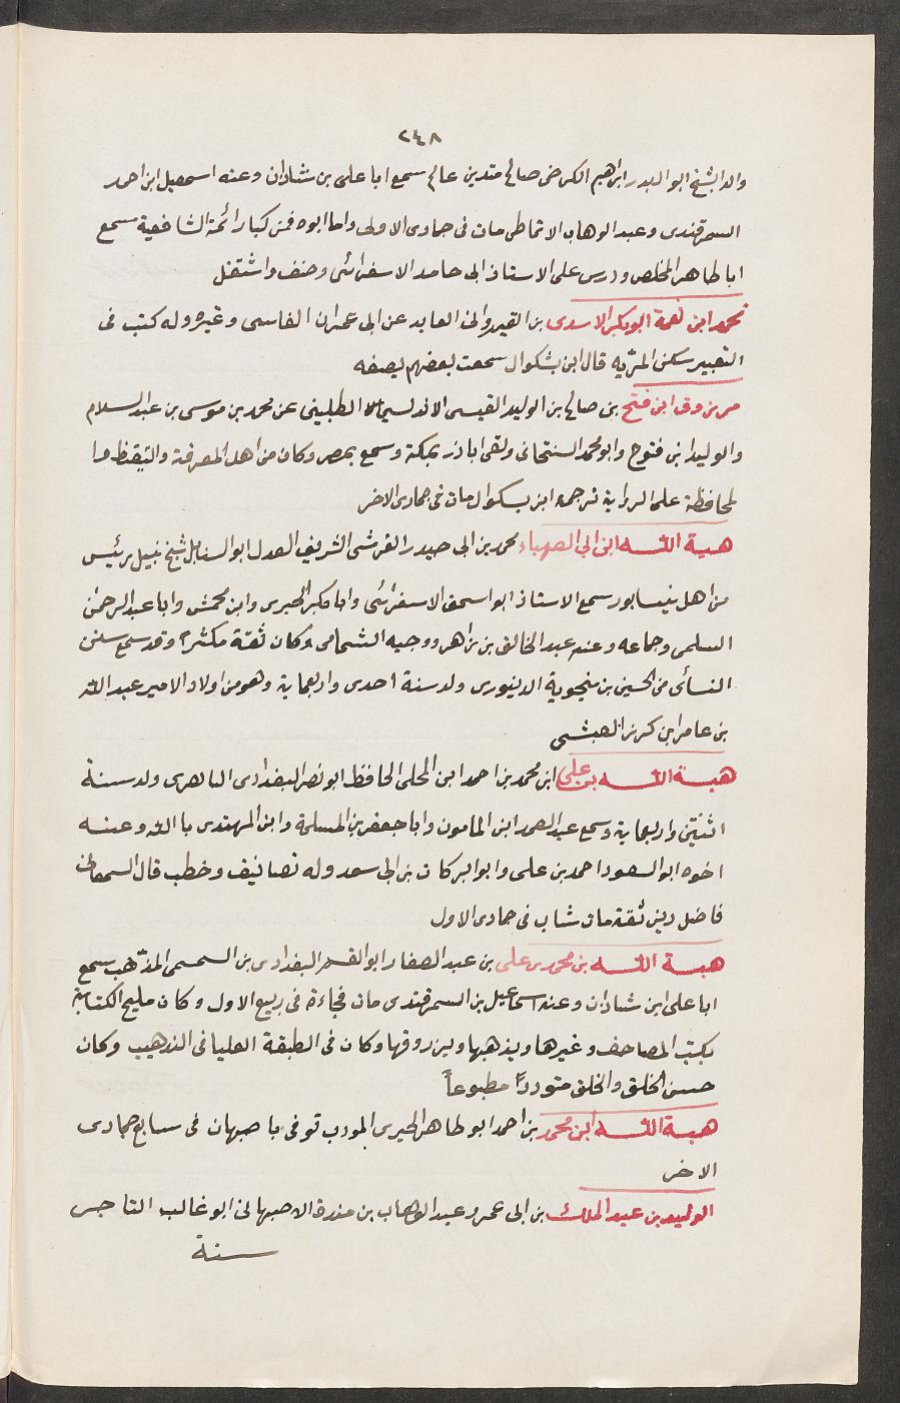 ٢٤٨
والد الشيخ ابو البدر ابراهيم الكرخى صالح متدين عالم سمع ابا على بن شاذان وعنه اسمعيل ابن احمد
السمرقندى وعبد الوهاب الانماطى مات فى جمادى الاولى واما ابوه فمن كبار ائمة الشافعية سمع
ابا طاهر المخلص ودرس على الاستاذ ابى حامد الاسفرائنى وصنف واشتغل
محمد ابن نعمة ابو بكر الاسدى بن القيروانى العابد عن ابى عمران الفاسى وغيره وله كتب فى
التعبير سكن المريه قال ابن بشكوال سمعت بعضهم يصفه
مرزوق ابن فتح بن صالح بن الوليد القيسى الاندلسى الطلبينى عن محمد بن موسى بن عبد السلام
والوليد ابن فتوح وابو محمد السنتجانى ولقى اباذر بمكة وسمع بمصر وكان من اهل المعرفة والتيقظ وا
لمحافظة على الرواية ترجمه ابن بسكوال مات فى جمادى الاخر
هبة الله ابن ابى الصهباء محمد بن ابى حيدر القرشى الشريف العدل ابو السنابل شيخ نبيل رئيس
من اهل نيسابور سمع الاستاذ ابو اسحق الاسفرائنى وابا بكر الحيرى وابن محمش وابا عبد الرحمن
السلمى وجماعه وعنه عبد الخالق بن زاهر ووجيه الشحامى وكان ثقة مكثرا وقد سمع سنن
النسائى من الحسين بن فنجوية الدينورى ولد سنة احدى واربعماية وهو من اولاد الامير عبد الله
بن عامر ابن كريز العبشمى
هبة الله بن على ابن محمد بن احمد ابن المحلى الحافظ ابو نصر البغدادى الناهرى ولد سنة
اثنتين واربعماية وسمع عبد الصمد ابن المامون وابا جعفر بن المسلمة وابن المهتدى بالله وعنه
اخوه ابو السعود احمد بن على وابو البركات بن ابى سعد وله تصانيف وخطب قال السمعانى
فاضل دين ثقة مات شاب فى جمادى الاول
هبة الله بن محمد بن على بن عبد الغفار ابو القسم البغدادى بن السمسمى المذهب سمع
ابا على ابن شاذان وعنه اسماعيل بن السمرقندى مات فجاءة فى ربيع الاول وكان مليح الكتابة
يكتب المصاحف وغيرها ويذهبها ويزروقها وكان فى الطبقة العليا فى التذهيب وكان
حسن الخلق والخلق متوددًا مطبوعاً
هبة الله ابن محمد بن احمد ابو طاهر الحيرى المودب توفى باصبهان فى سابع جمادى
الاخر
الوليد بن عبد الملك بن ابى عمرو عبد الوهاب بن مندة الاصبهانى ابو غالب التاجر
سنة